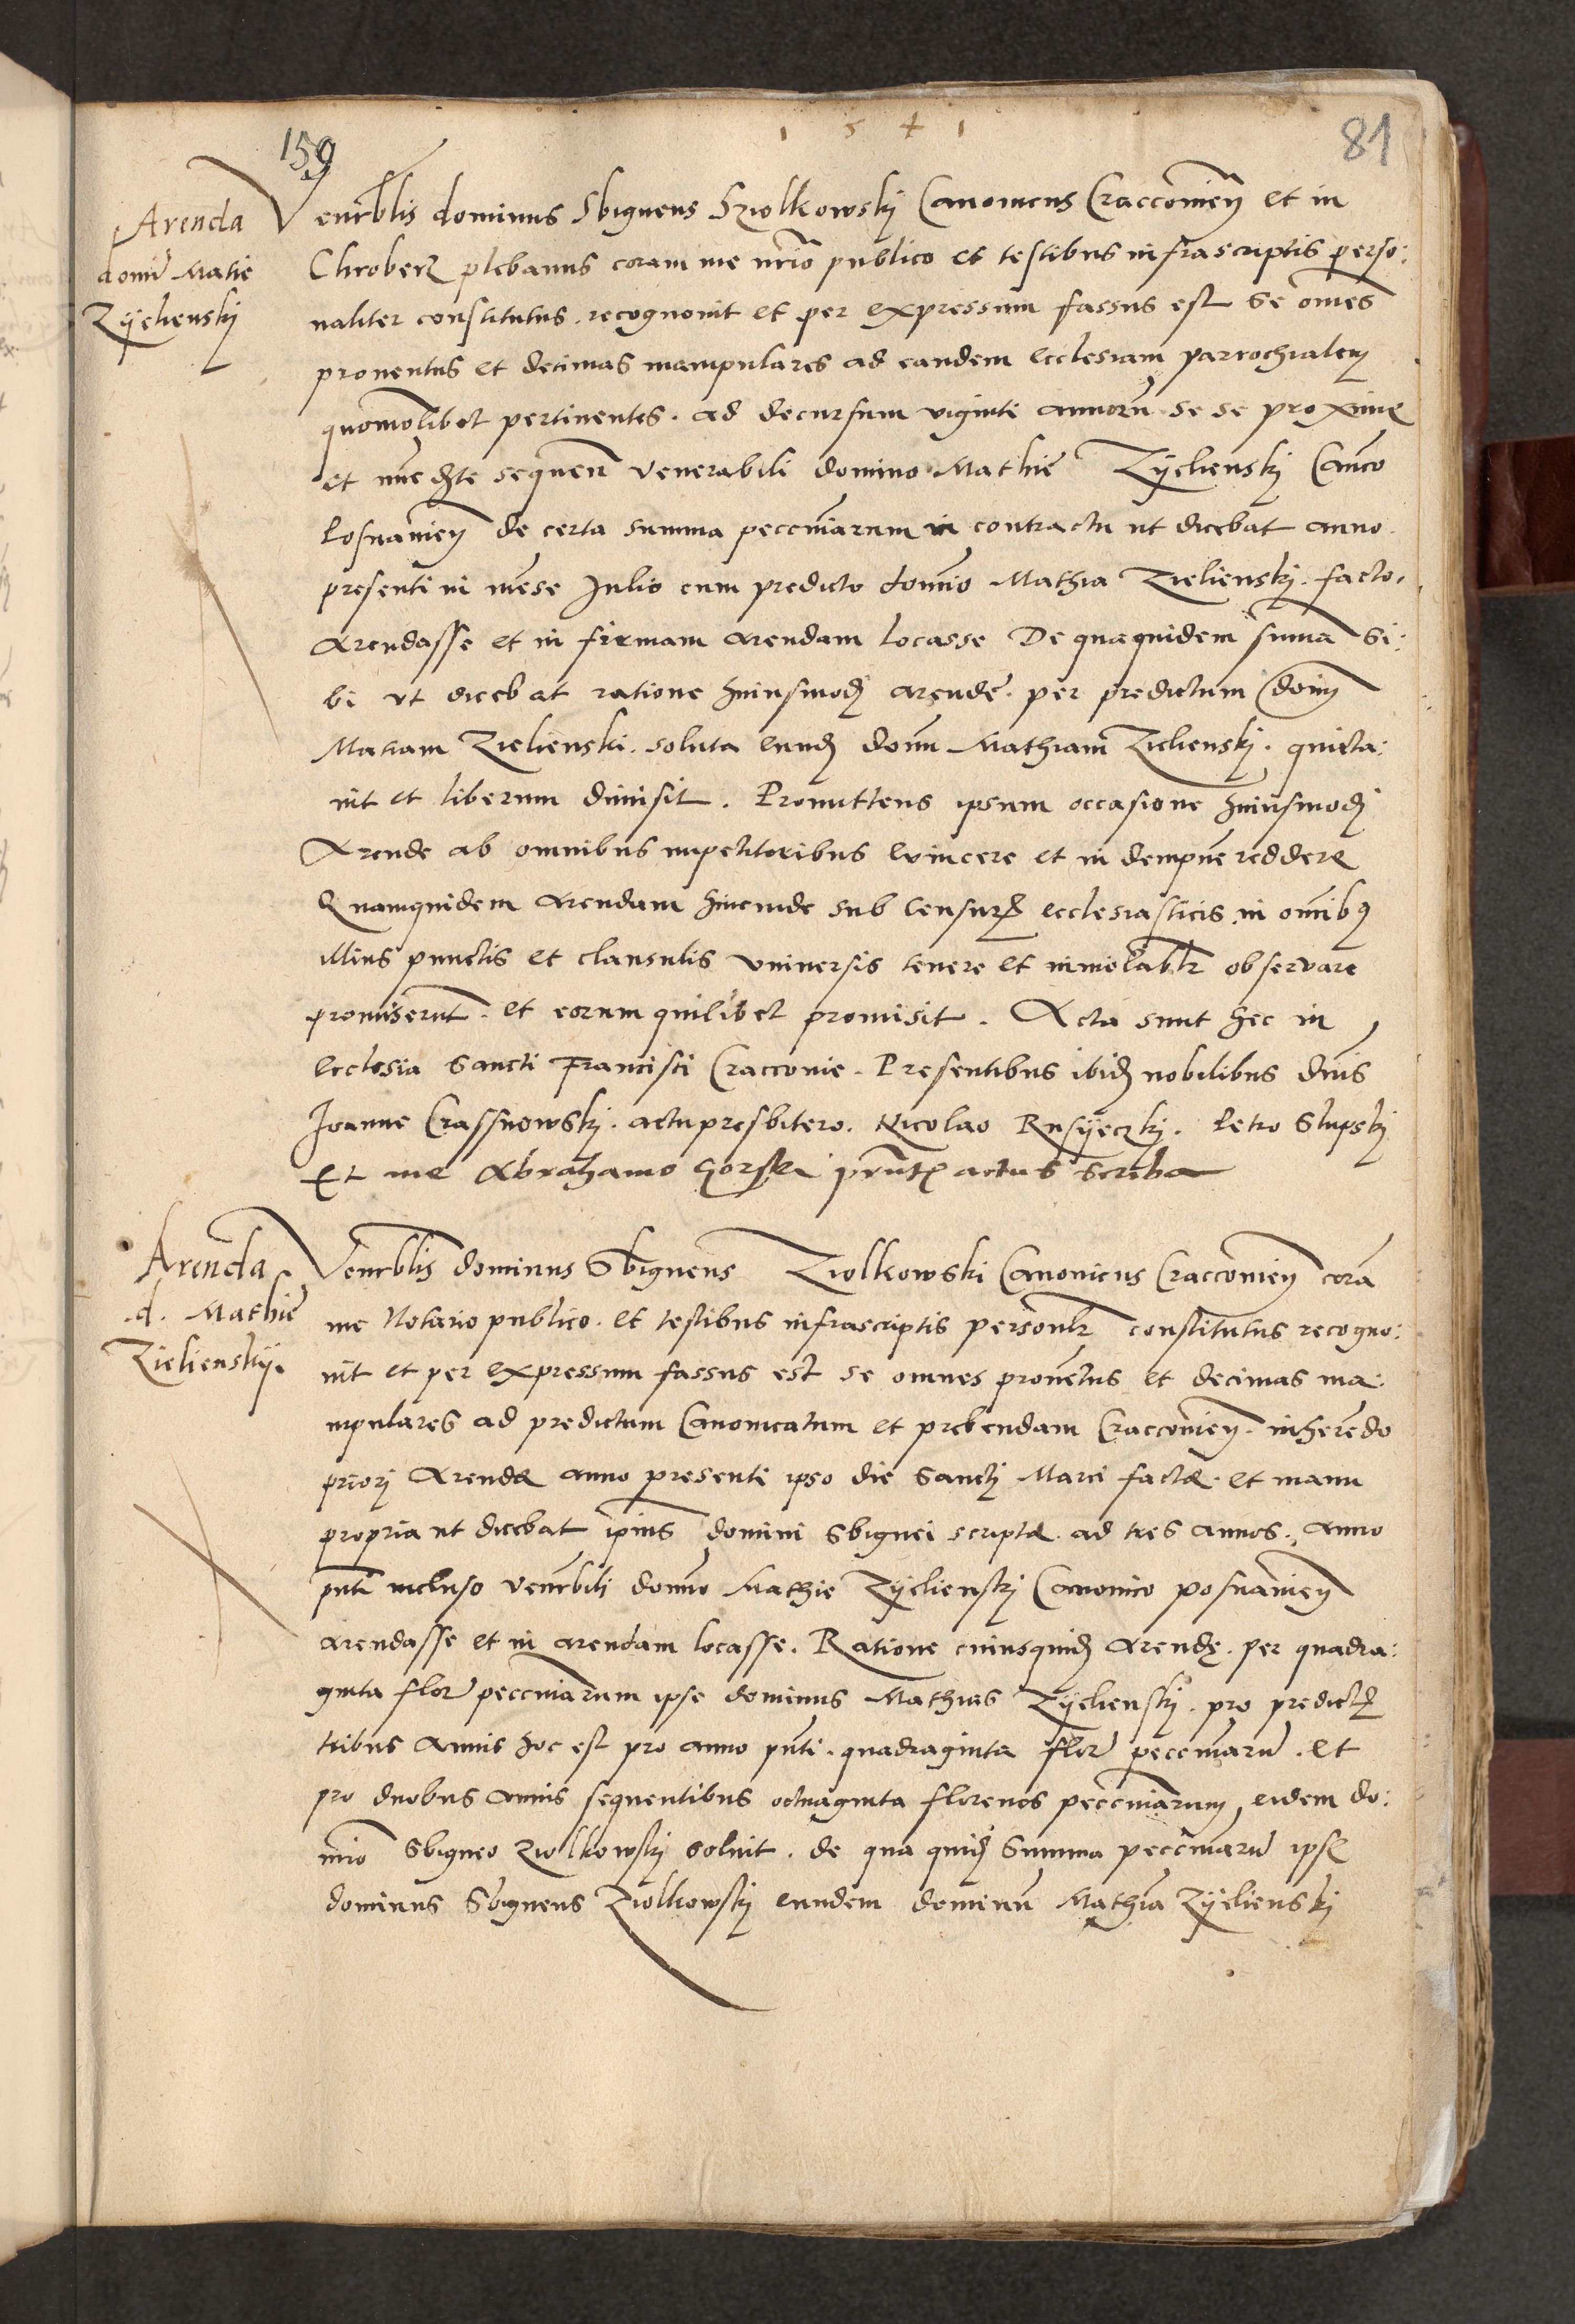 1 5 4 1
159
81
Arenda
domi Matie
Zÿelienskÿ
Venerblis dominus Sbigneus Sziolkowskÿ Canonicus Cracovien et in
Chroberz plebanus coram me nrio publico et testibus infrascriptis perso:
naliter constitutus. recognovit et per expressum fassus est se omes
proventus et decimas manipulares ad eandem ecclesiam parrochialem
quomolibet pertinentes. ad decursum viginti annoru se se proxime
et sequen venerabili domino Mathie Zÿelienskÿ Canco
Posnanien de certa summa peccuniarum in contractu ut dicebat anno
presenti in mense Julio cum predicto domino Mathia Zielienskÿ. facto.
Arendasse et in firmam arendam locasse De quaquidem suma si:
bi ut dicebat ratione huiusmodi arende. per predictum dom
Matiam Zielienski. soluta eund domi Mathiam Zielienskÿ. quieta:
vit et liberum dimisit. Promittens ipsum occasione huiusmodi
Arende ab omnibus impetitoribus evincere et in dempne reddere
Quamquidem arendam hincinde sub censuris ecclesiasticis in omibus
illius punctis et clausulis universis tenere et inviolablr observare
promiserut. et eorum quilibet promisit. Acta sunt hec in
ecclesia sancti Francisci Cracovie. Presentibus ibid nobilibus dnis
Joanne Crassnowskÿ. actu presbitero. Nicolao Rusÿeczkÿ. Petro Slupskÿ
Et me Abrahamo Gorski prntis actus scriba
Arenda
d. Mathie
Zielienskÿ.
Venerblis dominus Sbigneus Ziolkowski Canonicus Cracovien cora
me Notario publico. et testibus infrascriptis personlr constitutus recogno:
vit et per expressum fassus est se omnes proventus et decimas ma:
nipulares ad predictum Canonicatum et prebendam Cracovien. inherendo
priori Arende anno presenti ipso die sancti Marci facte. et manu
propria ut dicebat ipius domini Sbignei scripte. ad tres annos. anno
pnti incluso venerbili domino Mathie Zÿelienskÿ Canonico posnanien
arendasse et in arendam locasse. Ratione cuiusquid Arende. per quadra:
ginta flor peccuniarum ipse dominus Mathias Zÿelienskÿ. pro predictis
tribus annis hoc est pro anno pnti. quadraginta flor peccuniaru. et
pro duobus annis sequentibus octuaginta florenos peccuniarum eidem do:
mino Sbigneo Ziolkowskÿ solvit. de qua quid summa peccuniaru ipse
dominus Sbigneus Ziolkowskÿ eundem dominu Mathia Zÿelienskÿ